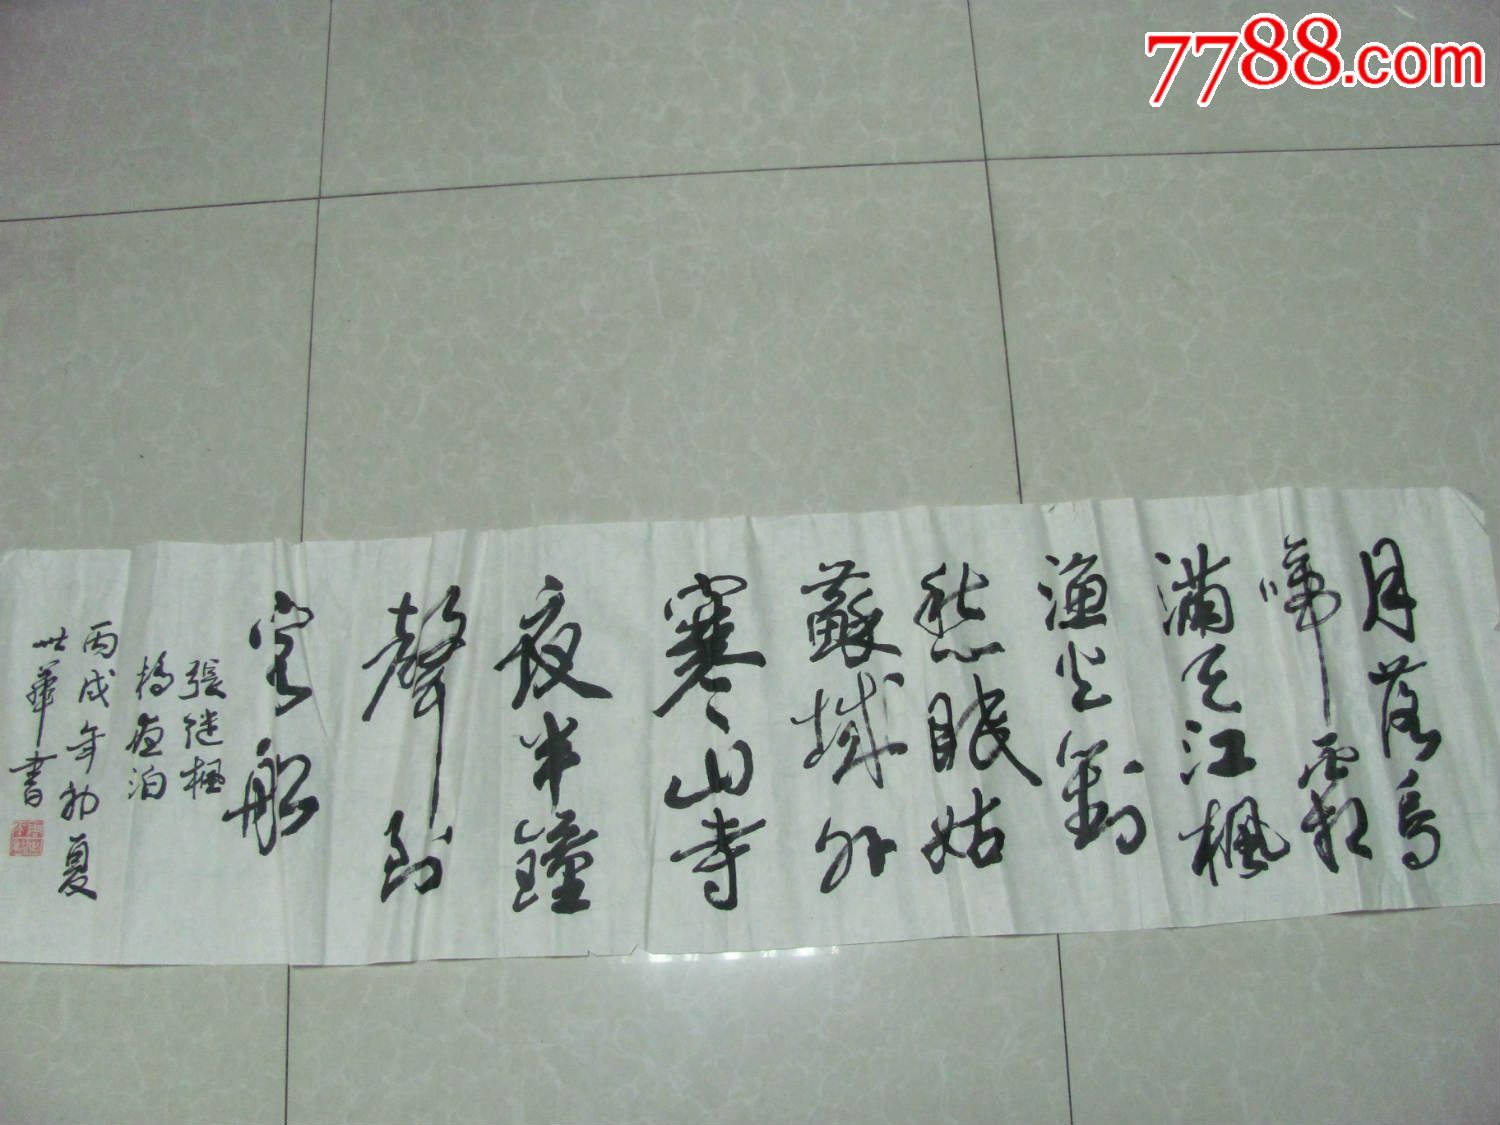 7788.com
月落烏
啼霜
滿天江楓
漁火對
愁眠姑
蘇城外
寒山寺
夜半鐘
聲到
客船
張继楓
橋夜泊
丙戌年初夏
世華書